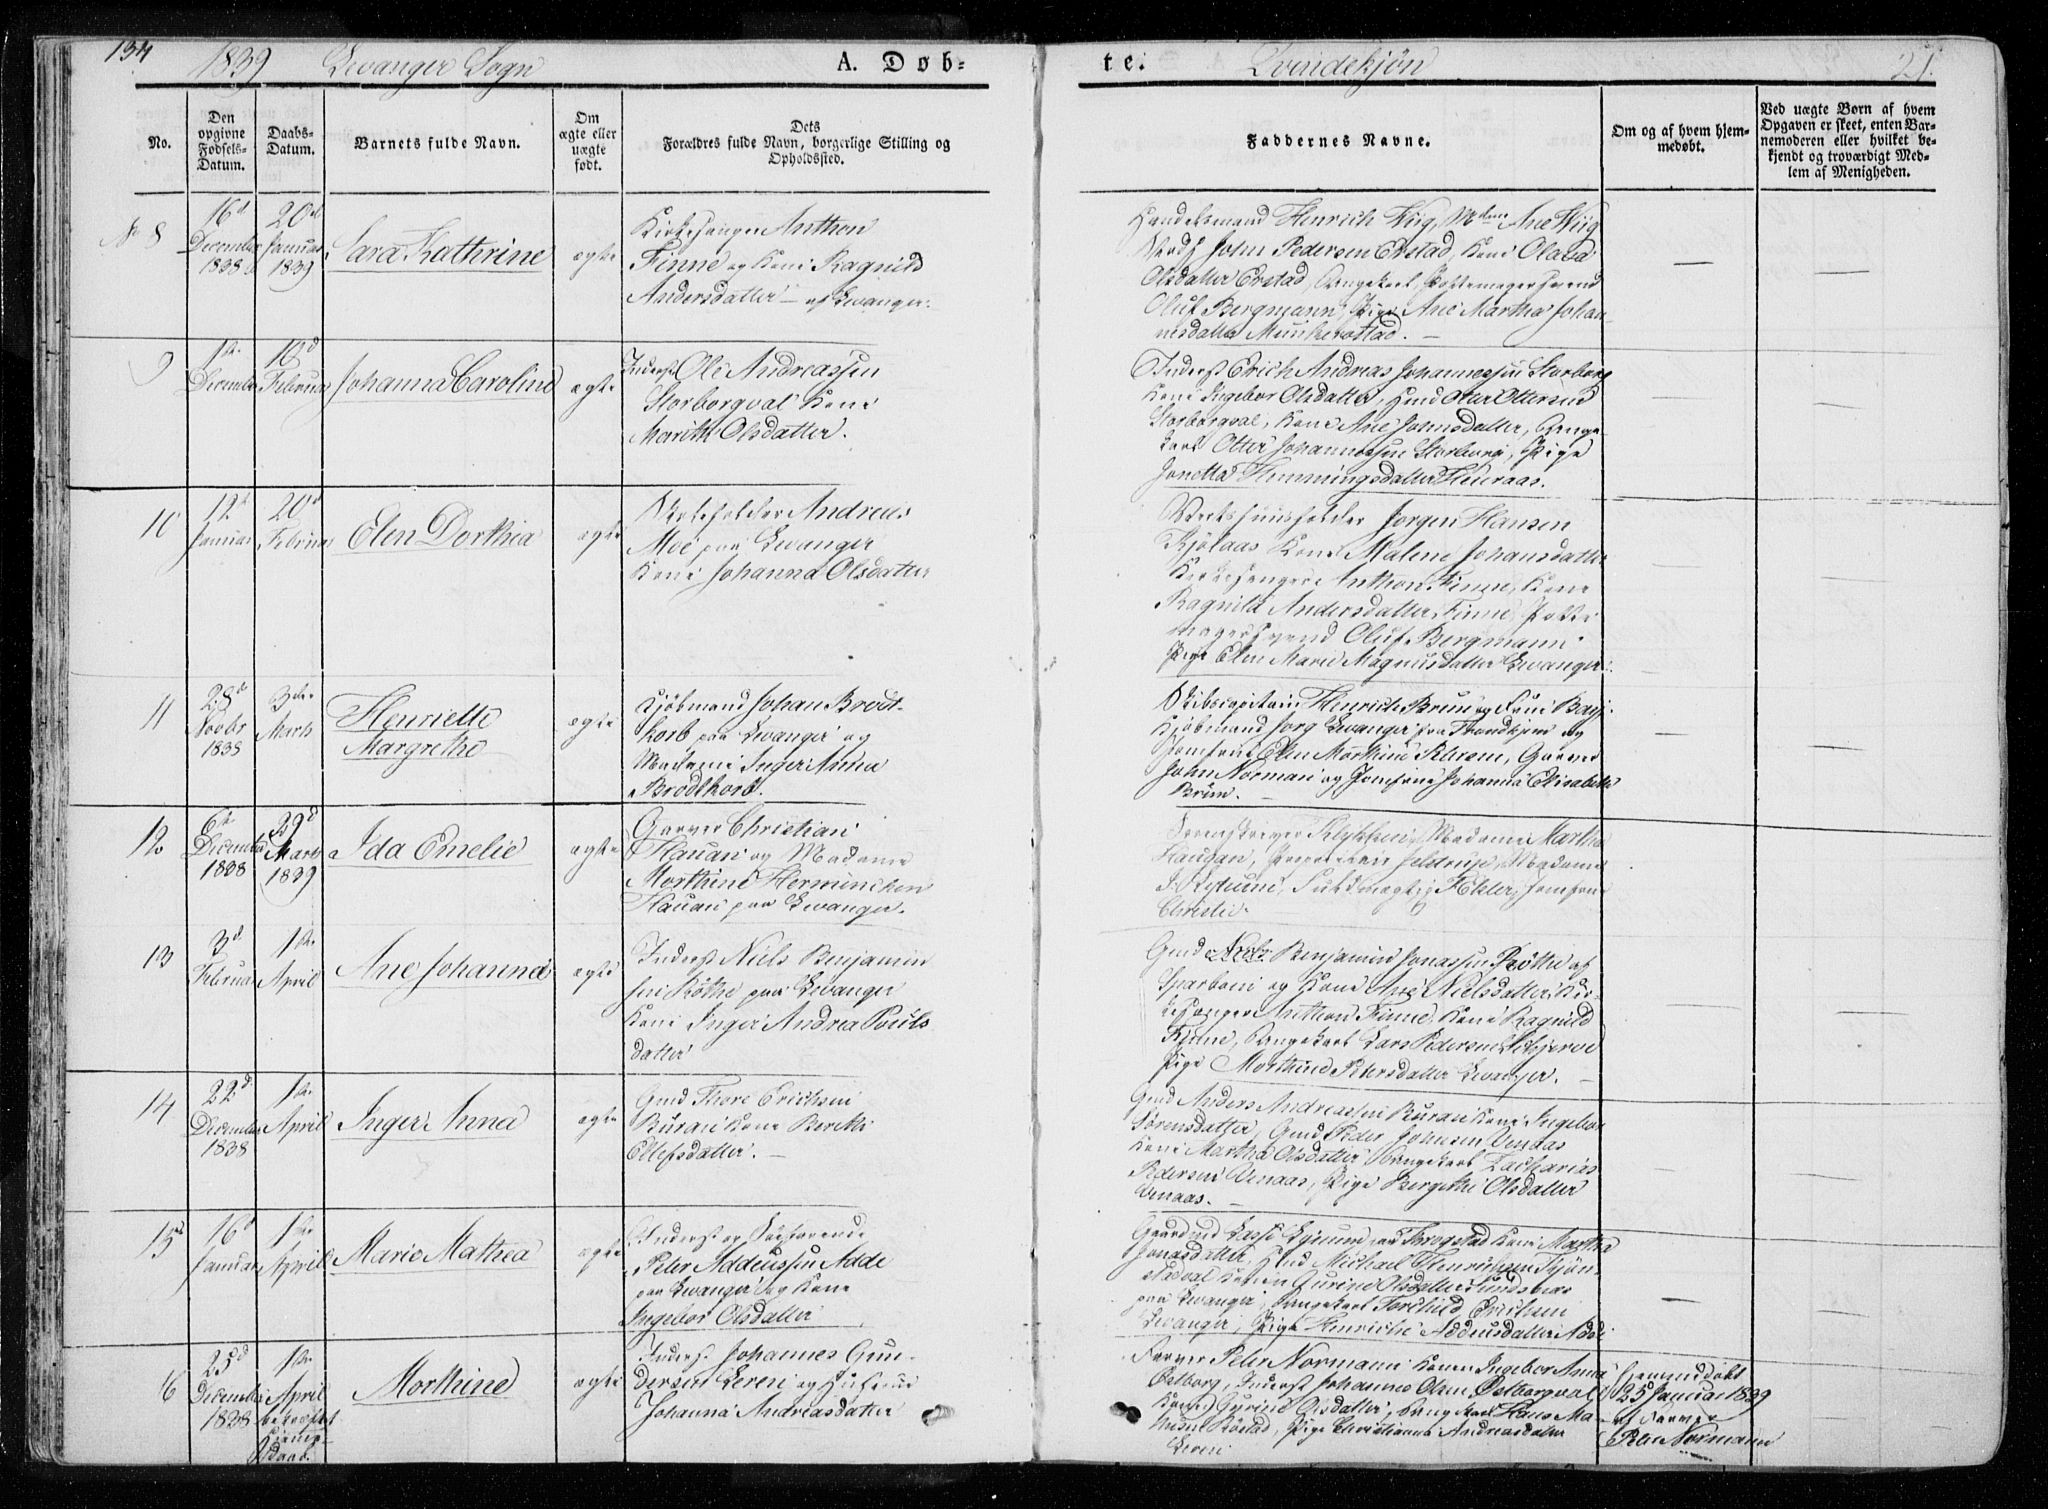 134
1839 Levanger Sogn
A. Døb-
te.
Qvindekjøn
21.
No.
Den opgivne Fødsels-Datum.
Daabs-Datum.
Barnets fulde Navn.
Om ægte eller uægte født.
Dets Forældres fulde Navn, borgerlige Stilling og Opholdssted.
Faddernes Navne.
Om og af hvem hjemmedøbt.
Ved uægte Børn af hvem Opgaven er skeet, enten Barnemoderen eller hvilket bekjendt og troværdigt Medlem af Menigheden.
No 8
16d December 1838
20d Januar 1839
Sara Kathrine
ægte
Kirkesanger Anthon
Finne og Kone Ragnild
Andersdatter – af Levanger.
Handelsmand Henrich Wiig, Mdme Ane Wiig
John Pedersen Erstad, Kone Olava
Olsdatter Erstad, Ungekarl Pottemagersvend
Oluf Bergmann, Pige Ane Martha Johan-
nesdatter Munkerøstad. –
9
1ste December
10d Februar
Johanna Caroline
ægte
Inderst Ole Andreassen
Storborgval Kone
Marith Olsdatter.
Inderst Erich Andreas Johannessen Storborg
Kone Ingebor Olsdatter, Hmd Otter Ottersen
Storborgval, Kone Ane Johnsdatter, Unge-
karl Otter Johannessen Storborg, Pige
Jonetta Hemmingsdatter Heiraas.
10
12t Januar
20d Februar
Elen Dorthea
ægte
Andreas
Moe paa Levanger
Kone Johanna Olsdatter
Vertshuusholder Jørgen Hansen
Kjølaas Kone Malene Johansdatter
Kirkesanger Anthon Finne, Kone
Ragnild Andersdatter Finne, Potte
magersvend Oluf Bergmann
Pige Elen Marie Magnusdatter Levanger.
11
28d Novbr 1838
3die Marts
Henriette
Margrethe
ægte
Kjøbmand Johan Brodt-
korb paa Levanger og
Madame Inger Anna
Brodtkorb.
Skibscapitain Henrich Brun og Frue
Kjøbmand Jorg Levanger fra Trondhjem og
Jomfrue Elen Morthine Petersen, Garver
John Norman og Jomfrue Johanna Elisabeth
Brun. –
12
6te December 1838
29d Marts 1839
Ida Emelie
ægte
Garver Christian
Hauan og Madame
Morthine Hermunchen
Hauan paa Levanger.
Madame Martha
Haugan, Proprietair Jelstrup, Madame
Fuldmægtig Jomfrue
Christie.
13
3d Februar
1ste April
Ane Johanna
ægte
Inderst Niels Benjamin
sen Røthe paa Levanger
Kone Inger Andrea Pouls
datter
Gmd Niels Benjamin Jonassen Røthe af
Sparboen og Kone Ane Nielsdatter, Kir-
kesanger Anthon Finne, Kone Ragnild
Finne, Ungekarl Lars Pedersen
Pige Morthine Petersdatter Levanger. –
14
22d December 1838
1ste April
Inger Anna
ægte
Gmd Thore Erichsen
Buran Kone Berethe
Ellefsdatter. –
Gmd Anders Andreassen Buran Kone Ingebor
Sørensdatter, Gmd Peder Johnsen Venaas
Kone Martha Olsdatter Ungekarl Zacharias
Pedersen Venaas, Pige Bergithe Olsdatter
Venaas. –
15
16d Januar
1ste April
Marie Mathea
ægte
Inderst og Søefarende
Peter Addeussen Adde
paa Levanger og Kone
Ingebor Olsdatter
Gaardmd Lasse Thrøgstad Kone Martha
Jonasdatter, Hmd Michael Henrichsen
Konen Gurine Olsdatter Sundsbak
paa Levanger, Ungekarl Torchild Erichsen
Levanger, Pige Henriche Addeusdatter Adde
16
25d December 1838
1ste April bekræftet Hjemmedaab.
Morthine
ægte
Inderst Johannes Gun-
dersen Leren og Hustrue
Johanna Andreasdatter
Farver Peter Normann Konen Ingebor Anna
Østborg, Inderst Johannes Olsen Østborgval
Kone Gurine Olsdatter, Ungekarl Hans Ma-
thesen Røstad, Pige Christianna Andreasdatter
Leren
Hjemmedøbt
25d Januar 1839
af Farver
Peter Normann